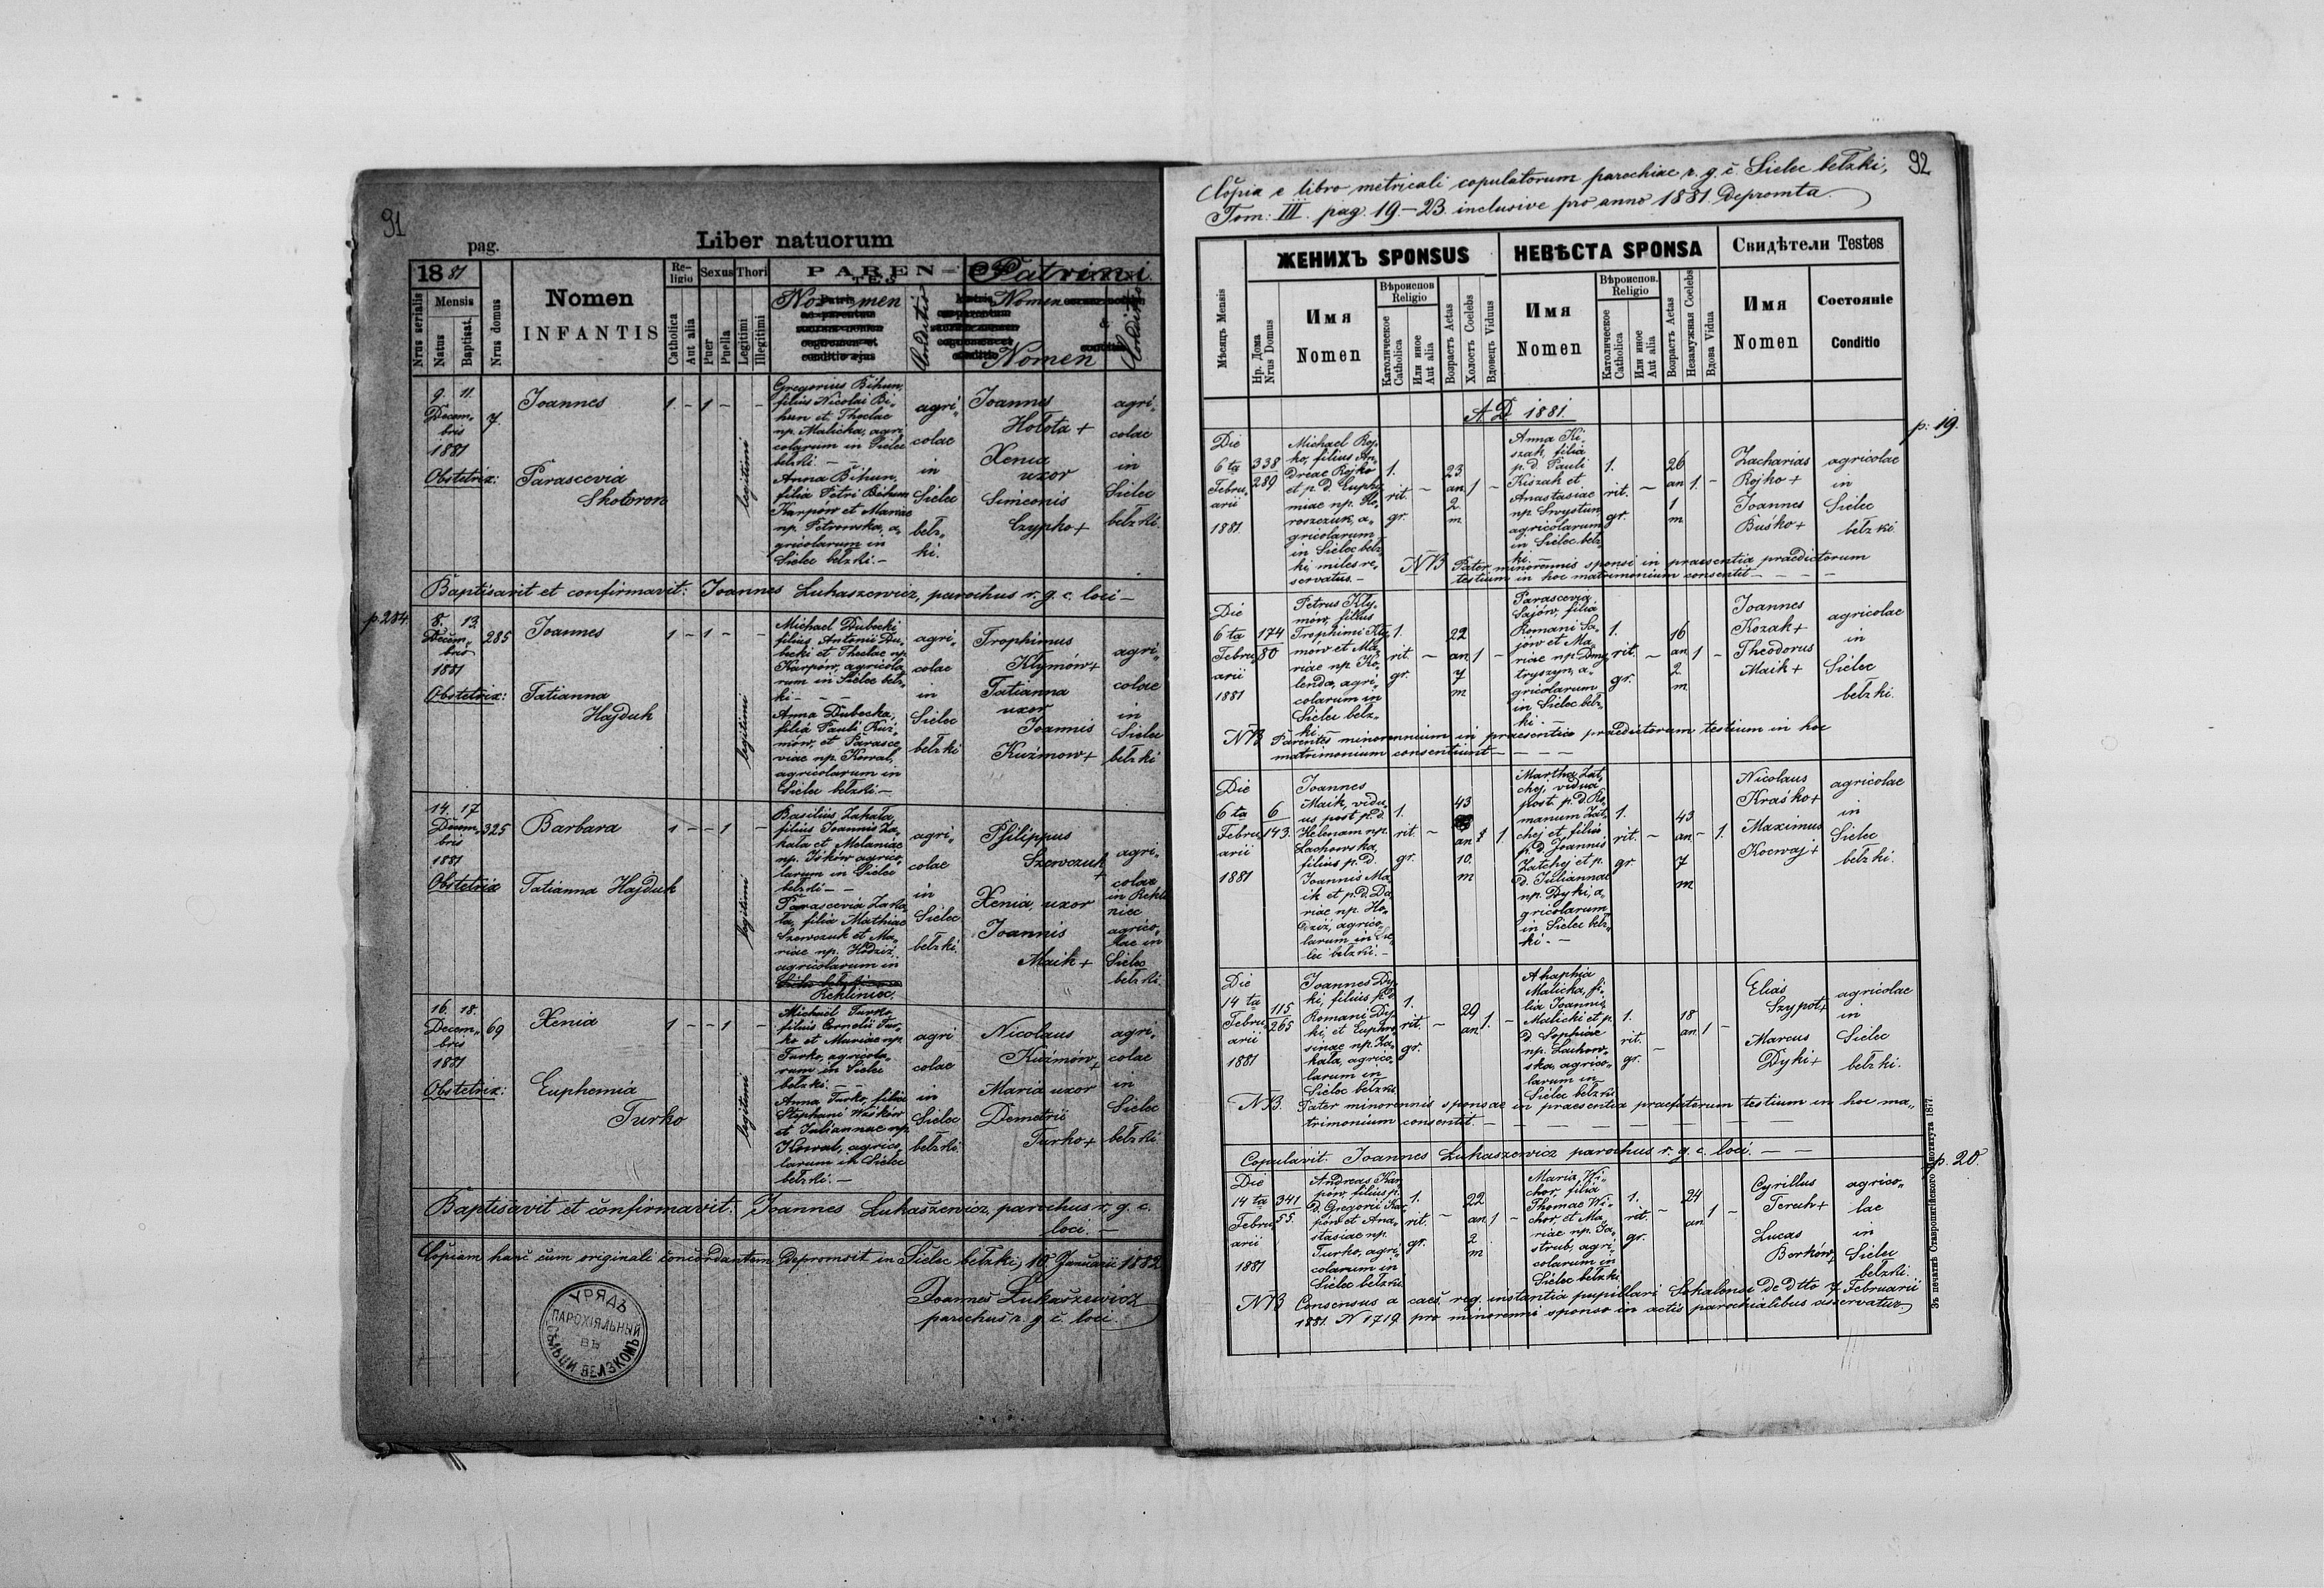 91
pag.
Liber natuorum
1881
Nrus serialis
Mensis
Natus
Baptisat.
Nrus domus
Nomen
INFANTIS
Religio
Catholica
Aut alia
Sexus
Puer
Puella
Thori
Legitimi
Illegitimi
PARENTES
Nomen
Conditio
Patrini
Nomen
Nomen
Conditio
9. 11.
Decem„
bris
1881
7.
Joannes
1. – 1 – –
legitimi
Gregorius Bihun,
filius Nicolai Bi„
hun et Theclae
np. Malicka, agri„
colarum in Sielec
bełzki. – –
Anna Bihun,
filia Petri Bihun
Karpow et Mariae
np. Petrowska, a„
gricolarum in
Sielec bełzki. –
agri„
colae
in
Sielec
bełz„
ki.
Joannes
Hołota +
Xenia
uxor
Simeonis
Czypko +
agri„
colae
in
Sielec
bełzki.
Obstetrix:
Parascevia
Skotoron
Baptisavit et confirmavit: Joannes Łukaszewicz, parochus r. g. c. loci –
p. 284.
8. 13.
Decem„
bris
1881
285
Joannes
1 – 1 – –
legitimi
Michael Dubecki
filius Antonii Du„
becki et Theclae np.
Karpow, agricola„
rum in Sielec bełz„
ki – – –
Anna Dubecka,
filia Pauli Kuź„
mów, et Parasce„
viae np. Kowal,
agricolarum in
Sielec bełzki. –
agri„
colae
in
Sielec
bełzki
Trophimus
Klymów +
Tatianna
uxor
Joannis
Kuźmow +
agri„
colae
in
Sielec
bełzki
Obstetrix:
Tatianna
Hajduk
14. 17.
Decem„
bris
1881
325
Barbara
1 – – 1 –
legitimi
Basilius Zakała,
filius Joannis Za„
kała et Melaniae
np. Iśków agrico„
larum in Sielec
bełzki – –
Parascevia Zaka„
ła, filia Mathiae
Szewczuk et Ma„
riae np. Hodziż
agricolarum in
Rekliniec.
agri„
colae
in
Sielec
bełzki.
Philippus
Szewczuk
+
Xenia, uxor
Joannis
Maik +
agri„
colae
in Rekli„
niec
agrico„
lae in
Sielec
bełzki.
Obstetrix
Tatianna Hajduk
16. 18.
Decem„
bris
1881
69
Xenia
1 – – 1 –
legitimi
Michael Turko,
filius Cornelii Tur„
ko et Mariae np.
Turko, agricola„
rum in Sielec
bełzki. – –
Anna Turko, filia
Stephani Waśków
et Juliannae np.
Kowal, agrico„
larum in Sielec
bełzki. –
agri
colae
in
Sielec
bełzki.
Nicolaus
Kuźmów +
Maria uxor
Demetrii
Turko +
agri„
colae
in
Sielec
bełzki.
Obstetrix:
Euphemia
Turko
Baptisavit et confirmavit: Joannes Łukaszewicz, parochus r. g. c.
loci. –
Copiam hanc cum originali concordantem depromsit in Sielec bełzki, 10. Januarii 1882
Joannes Łukaszewicz
parochus r. g. c. loci.
УРЯДЪ
ПАРОХІЯЛЬНЫЙ
ВЪ
СѢЛЬЦИ БЕЛЗКОМЪ
92
Copia e libro metricali copulatorum parochiae r. g. c. Sielec bełzki,
Tom: III. pag. 19. – 23. inclusive pro anno 1881. Depromta.
Мѣсяцъ Mensis
Нр. Дома
Nrus Domus
ЖЕНИХЪ SPONSUS
Имя
Nomen
Вѣроиспов
Religio
Католическое
Catholica
Или иное
Aut alia
Возрастъ Aetas
Холостъ Coelebs
Вдовецъ Viduus
НЕВѢСТА SPONSA
Имя
Nomen
Вѣроиспов.
Religio
Католическое
Catholica
Или иное
Aut alia
Возрастъ Aetas
Незамужная Coelebs
Вдова Vidua
Свидѣтели Testes
Имя
Nomen
Состояніе
Conditio
A. D. 1881.
p: 19.
Die
6 ta
Febru„
arii
1881.
338
289
Michael Roj„
ko, filius An„
dreae Rojko
et p. d. Euphi„
miae np. He„
roszczuk, a„
gricolarum
in Sielec bełz„
ki, miles re„
servatus. –
1.
rit.
gr.
–
23
an
2
m
1 –
Anna Ki„
szak, filia
p. d. Pauli
Kiszak et
Anastasiae
np. Swystun,
agricolarum
in Sielec bełz„
ki. –
1.
rit.
gr.
–
26
an
1
m
1. –
Zacharias
Rojko +
Joannes
Buśko +
agricolae
in
Sielec
bełzki.
NB. Pater minorennis sponsi in praesentia praedictorum
testium in hoc matrimonium consentit – – – –
Die
6 ta
Febru„
arii
1881
174
80
Petrus Kly„
mów, filius
Trophimi Kly„
mow et Ma„
riae np. Ko„
lenda, agri„
colarum in
Sielec bełz„
ki. –
1.
rit.
gr.
–
22
an
7
m
1 –
Parascevia
Sajów, filia
Romani Sa„
jów et Ma„
riae np Dmy„
tryszyn, a„
gricolarum
in Sielec bełz„
ki. –
1.
rit.
gr.
–
16
an
2
m
1 –
Joannes
Kozak +
Theodorus
Maik +
agricolae
in
Sielec
bełzki.
NB. Parentes minorennium in praesentia praedictorum testium in hoc
matrimonium consentiunt – – – –
Die
6 ta
Febru„
arii
1881
6
143.
Joannes
Maik, vidu„
us post p. d.
Helenam np.
Lachowska,
filius p. d.
Joannis Ma„
ik et p. d. Da„
riae np. Ho„
dziż, agrico„
larum in Sie„
lec bełzki. –
1.
rit
gr.
–
43
an
10.
m
1.
Martha Zat„
chej, vidua
post. p. d. Ro„
manum Zat„
chej et filia
p. d. Joannis
Zatchej et p.
d. Juliannae
np. Dyki, a„
gricolarum
in Sielec bełz„
ki. –
1.
rit.
gr.
–
43
an
7
m
– 1.
Nicolaus
Kraśko +
Maximus
Kocwaj +
agricolae
in
Sielec
bełzki.
Die
14 ta
Febru„
arii
1881
115
265
Joannes Dy„
ki, filius p. d.
Romani Dy„
ki, et Euphro„
sinae np. Za„
kała, agrico„
larum in
Sielec bełzki.
1.
rit.
gr.
–
29
an
1. –
Ahaphia
Malicka, fi„
lia Joannis
Malicki et p.
d. Sophiae
np. Lachow„
ska, agrico„
larum in
Sielec bełzki
1.
rit.
gr.
–
18
an
1 –
Elias
Szypot +
Marcus
Dyki +
agricolae
in
Sielec
bełzki.
NB. Pater minorennis sponsae in praesentia praefatorum testium in hoc ma„
trimonium consentit. – – – – – – – –
Copulavit: Joannes Łukaszewicz parochus r. g. c. loci. – –
p. 20.
Die
14 ta
Febru„
arii
1881
341
55.
Andreas Kar„
pow, filius p.
d. Gregorii Kar„
pow et Ana„
stasiae np.
Turko, agri„
colarum in
Sielec bełzki.
1.
rit.
gr.
–
22
an
2
m
1 –
Maria Wi„
chor, filia
Thomae Wi„
chor, et Ma„
riae np. Ja„
strub, agri„
colarum in
Sielec bełzki.
1.
rit.
gr.
–
24
an
1 –
Cyrillus
Teruh +
Lucas
Borków +
agrico„
lae
in
Sielec
bełzki.
NB Consensus a caes. reg. instantia pupillari Sokalensi de dtto 7 Februarii
1881. N 1719 pro minorenni sponso in actis parochialibus asservatur
Зъ печатнѣ Ставропигійского Института 1877.